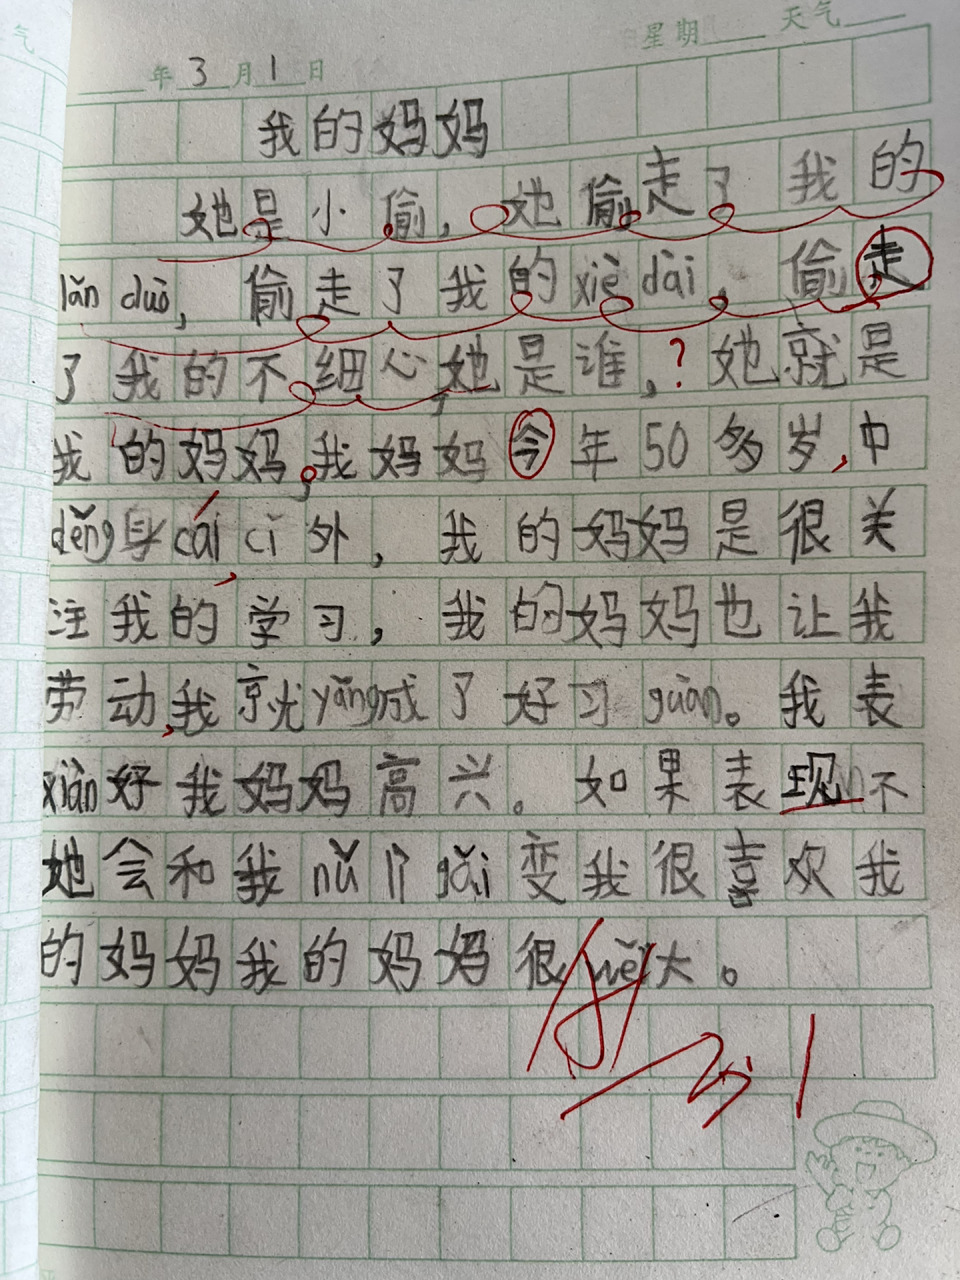 星期 天气
年3月1日
我的妈妈
她是小偷，她偷走了我的
lǎn duò，偷走了我的xiè dài，偷走
了我的不细心，她是谁，？她就是
我的妈妈。我妈妈今年50多岁，中
děng身cái，cǐ外，我的妈妈是很关
注我的学习，我的妈妈也让我
劳动，我就yǎng成了好习guàn。我表
xiàn好我妈妈高兴。如果表现不
她会和我nǔ lì gǎi变我很喜欢我
的妈妈我的妈妈很wěi大。